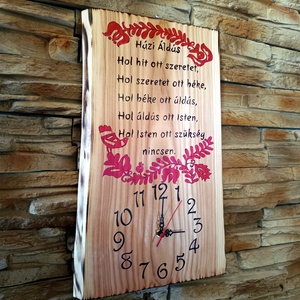 Házi Áldás
Hol hit ott szeretet,
Hol szeretet ott béke,
Hol béke ott áldás,
Hol áldás ott Isten,
Hol Isten ott szükség
nincsen.
12
11 1
10 2
9 3
8 4
7 6 5